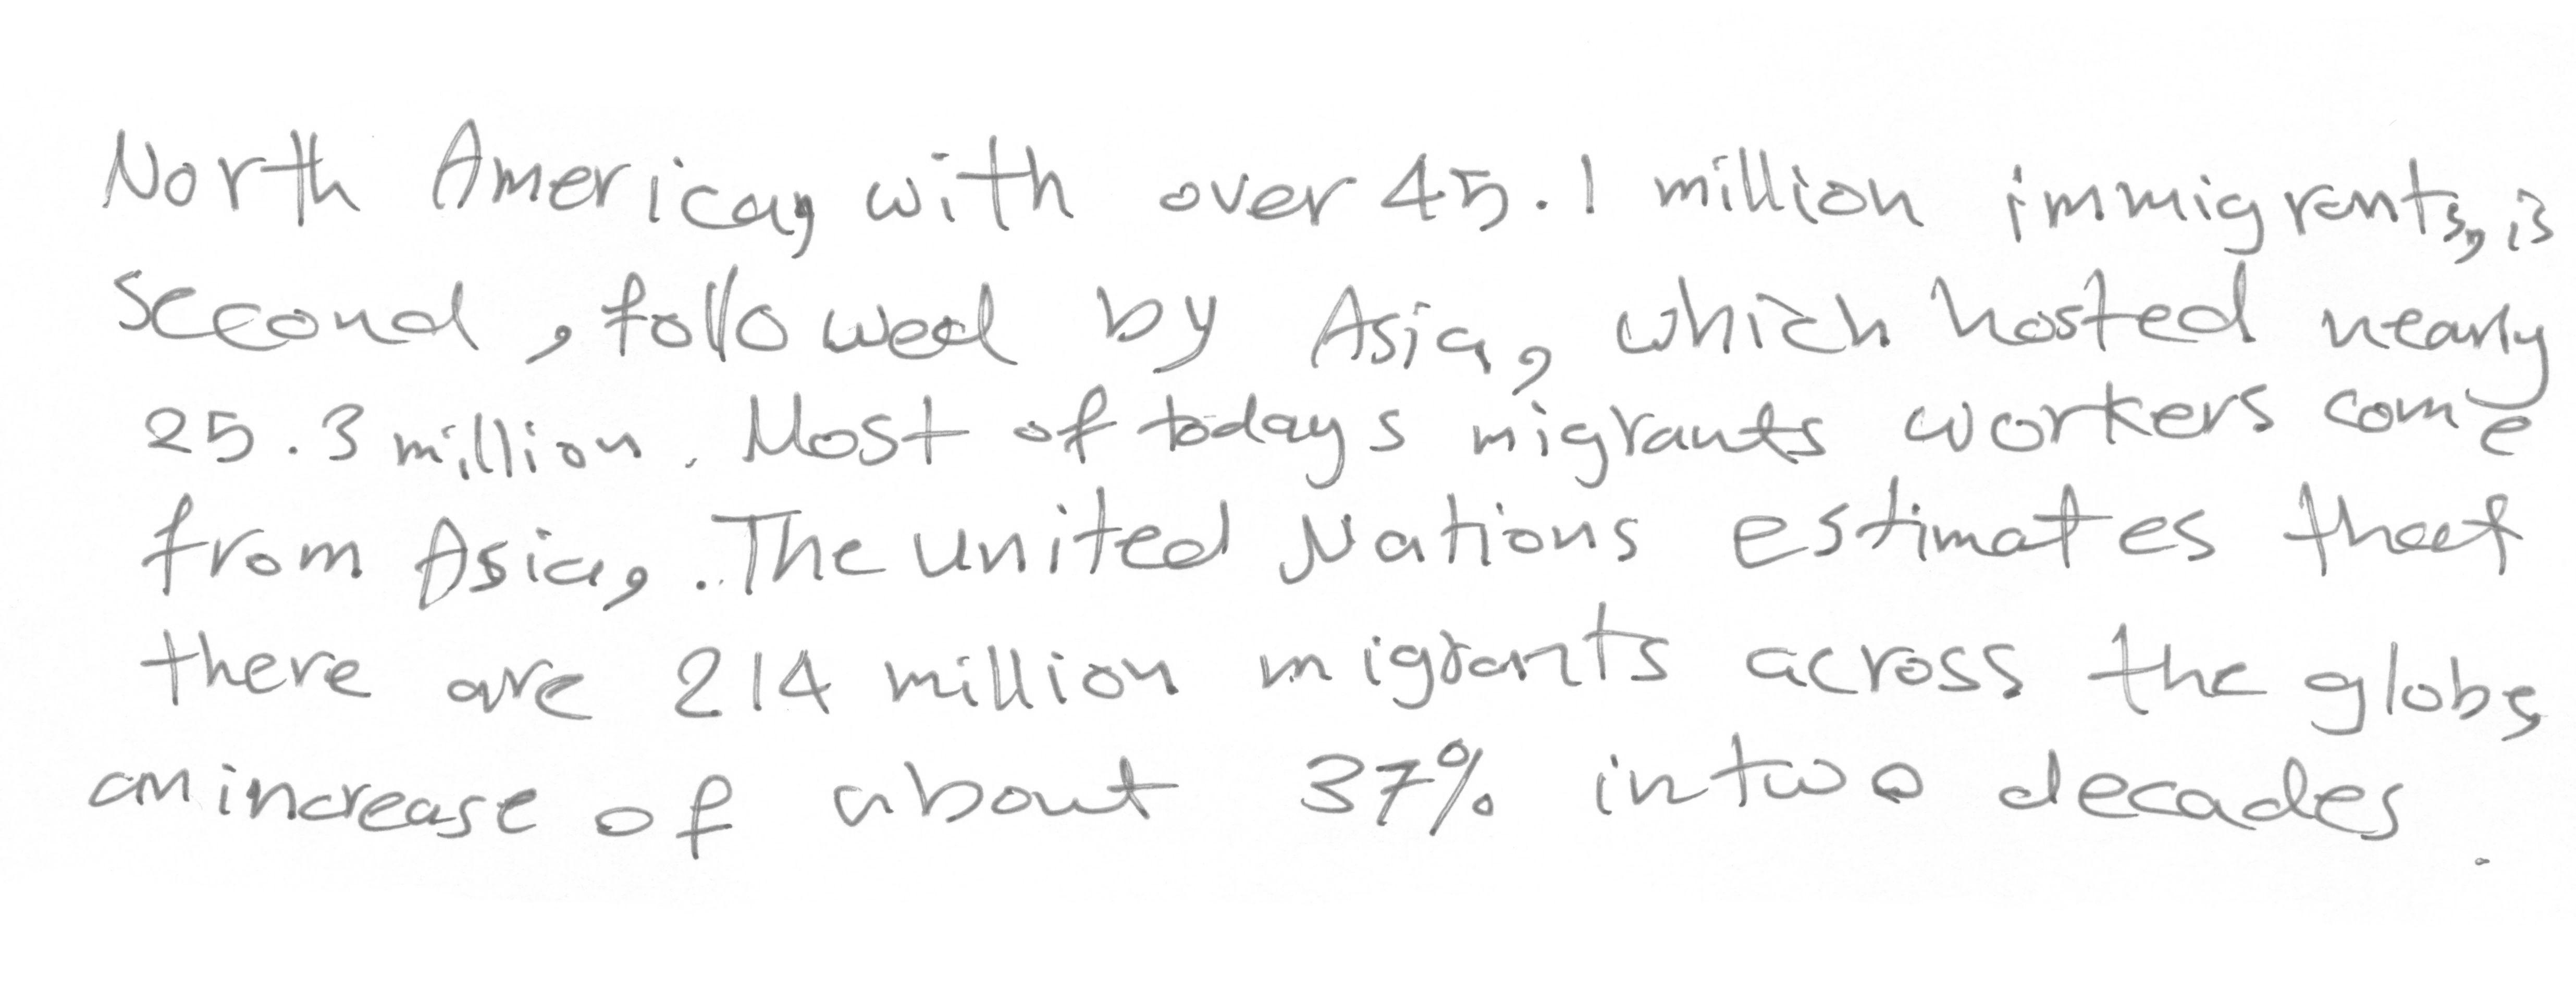 North America, with over 45.1 million immigrants, is
second, followed by Asia, which hosted nearly
25.3 million. Most of todays migrants workers come
from Asia,. The united Nations estimates that
there are 214 million migrants across the globe,
an increase of about 37% in two decades.